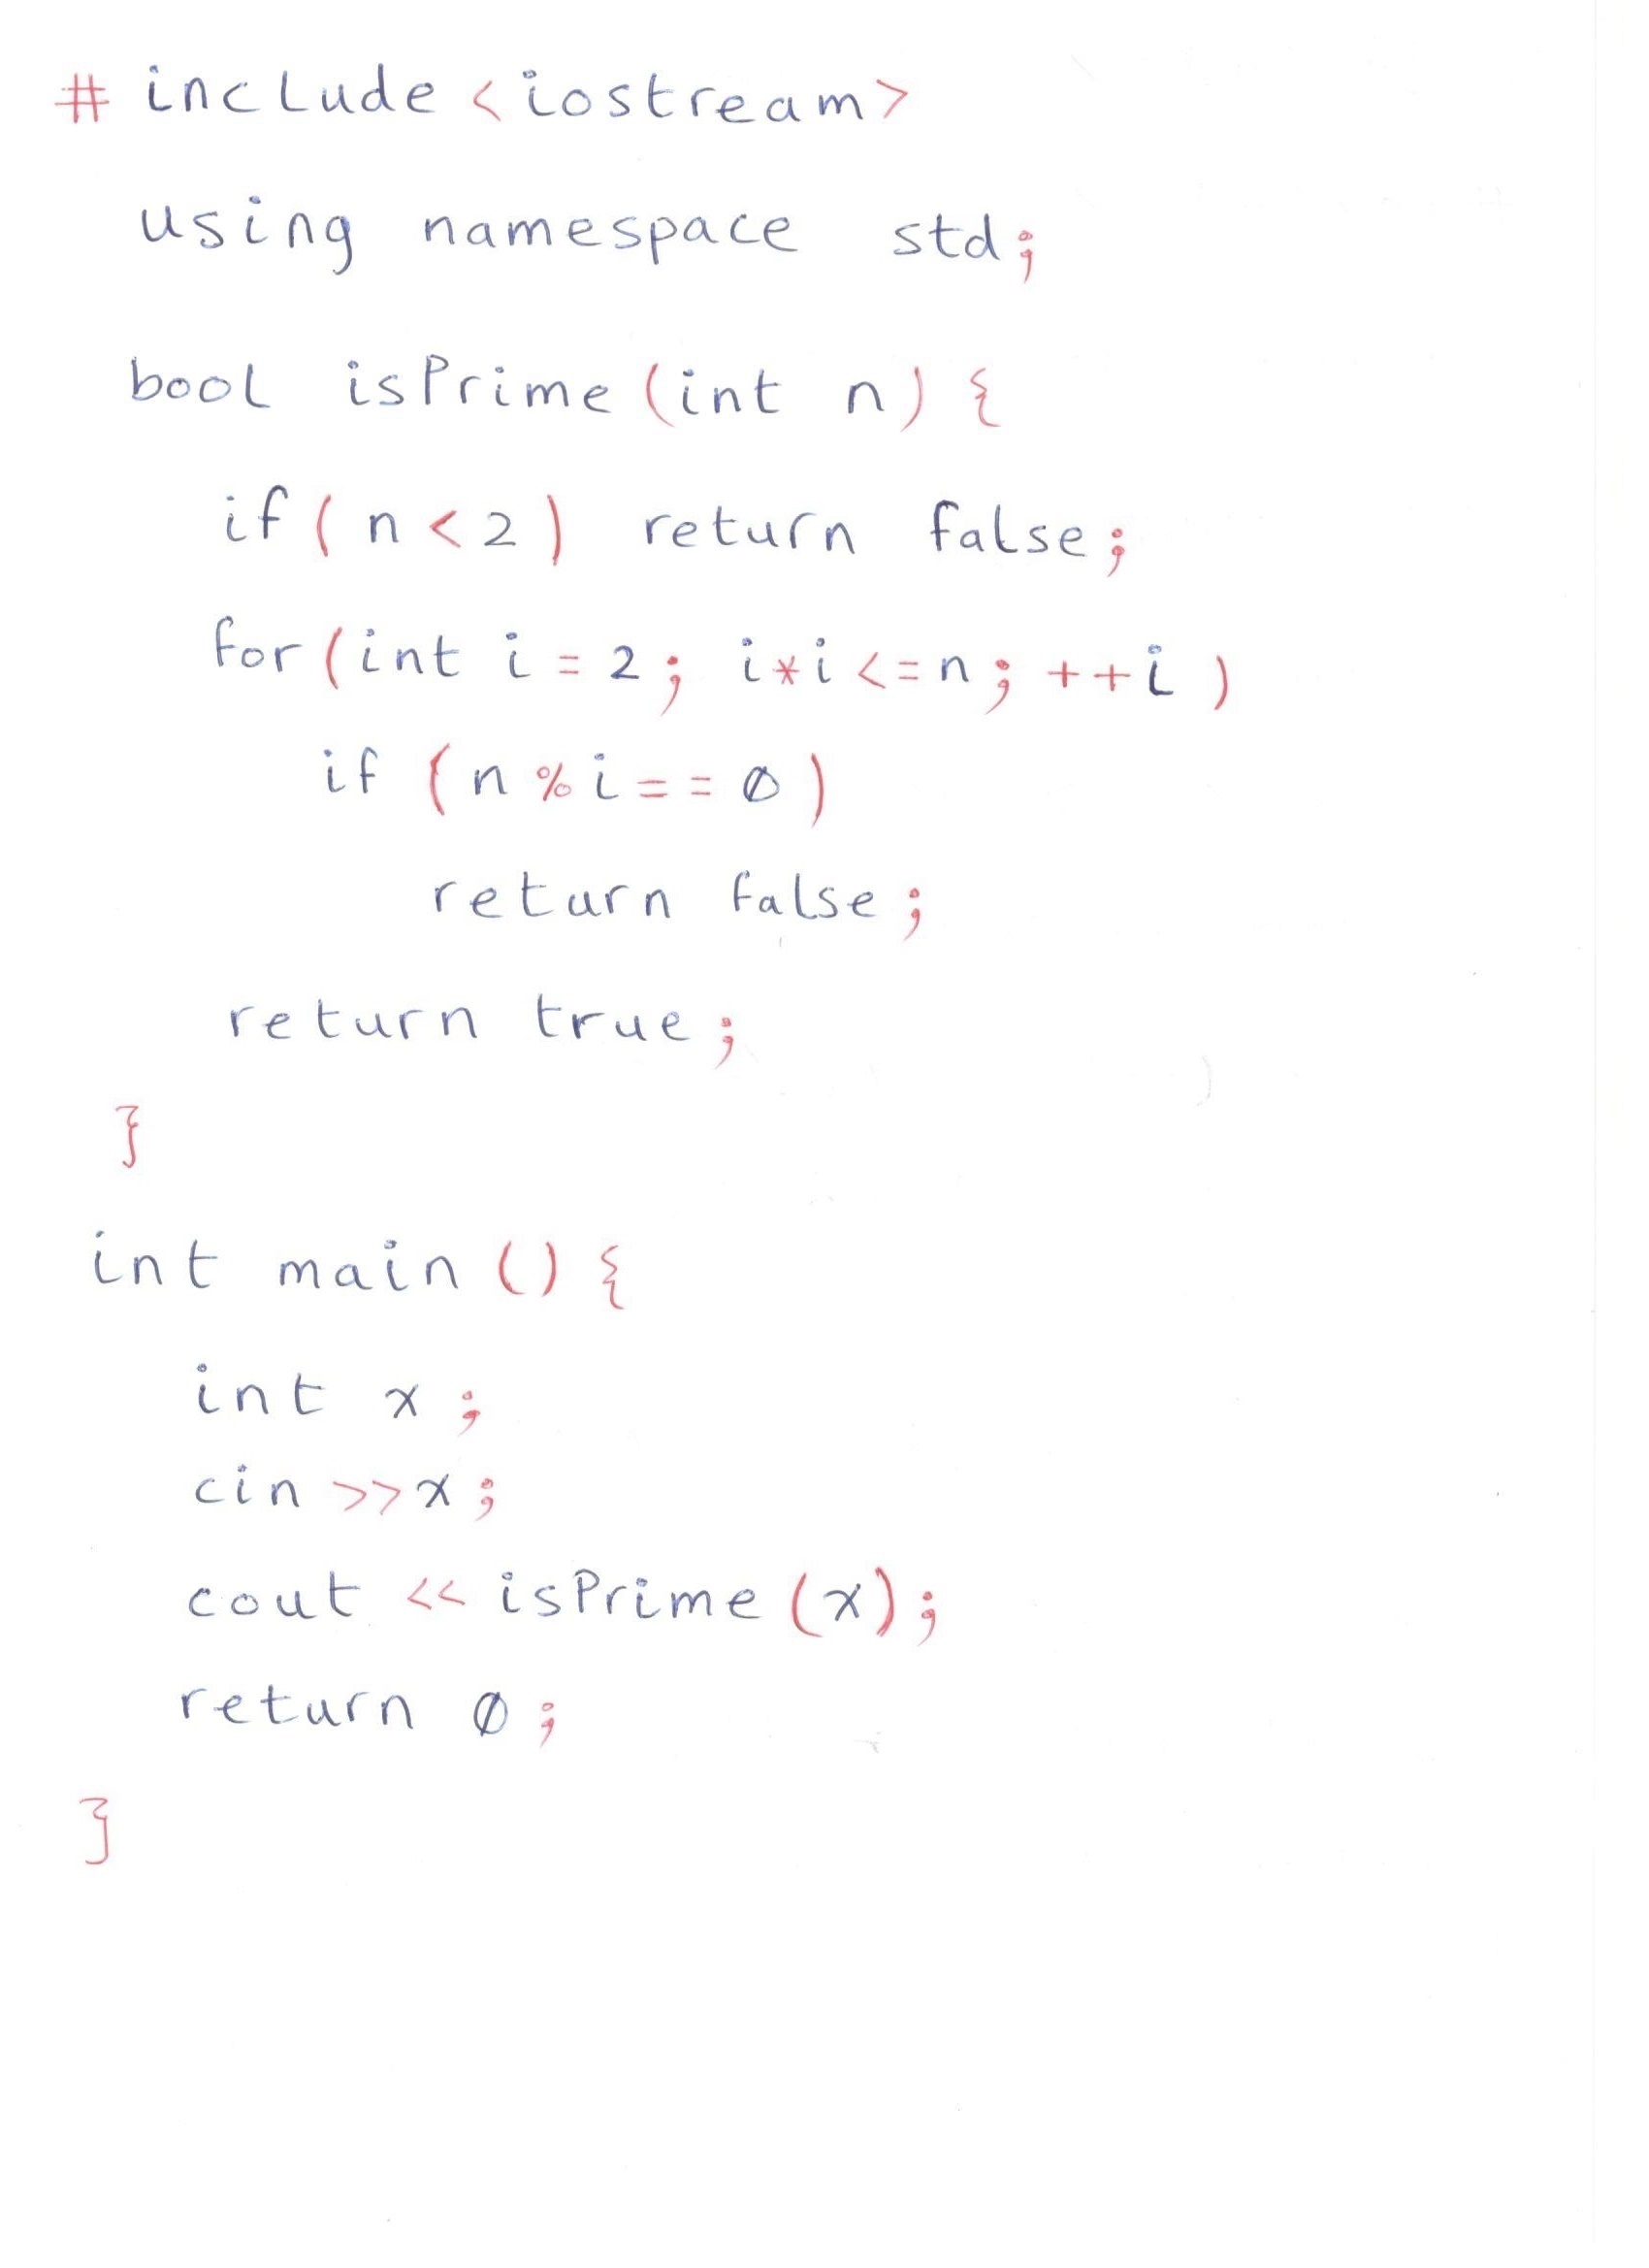 # include <iostream>
using namespace std;
bool isPrime (int n) {
if ( n < 2 ) return false;
for (int i = 2; i*i <= n; ++i )
if (n % i == 0)
return false;
return true;
}
int main () {
int x;
cin >> x;
cout << isPrime (x);
return 0;
}